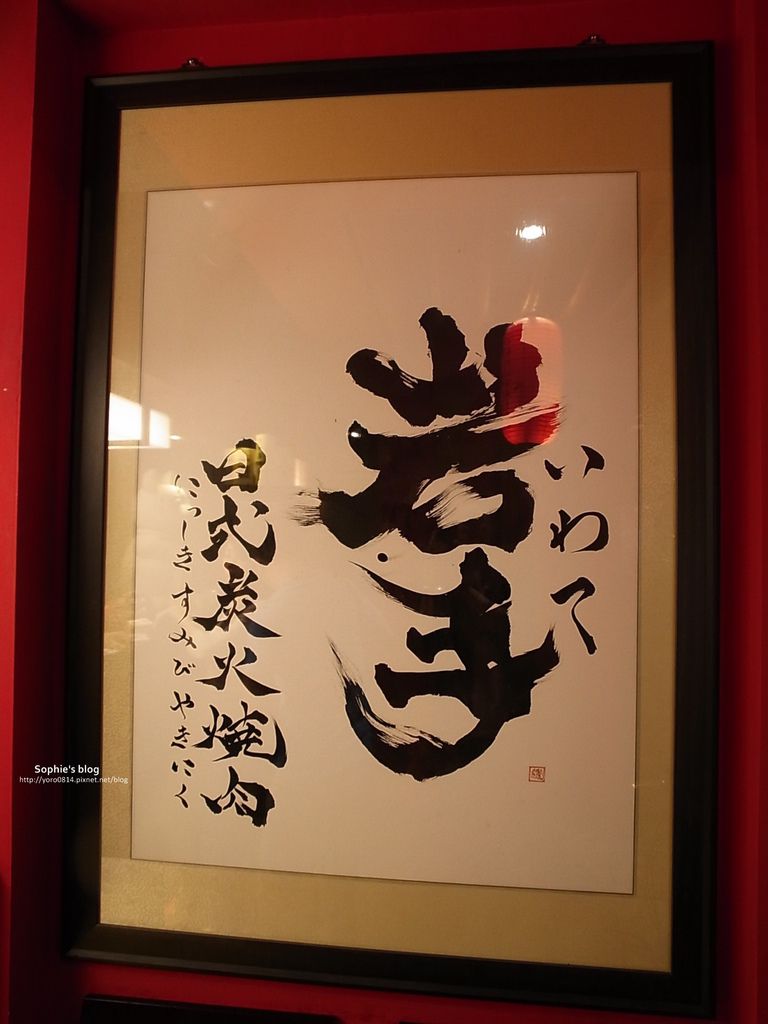 いわて
岩手
日式炭火焼肉
にっしきすみびやきにく
Sophie's blog
http://yoro0814.pixnet.net/blog